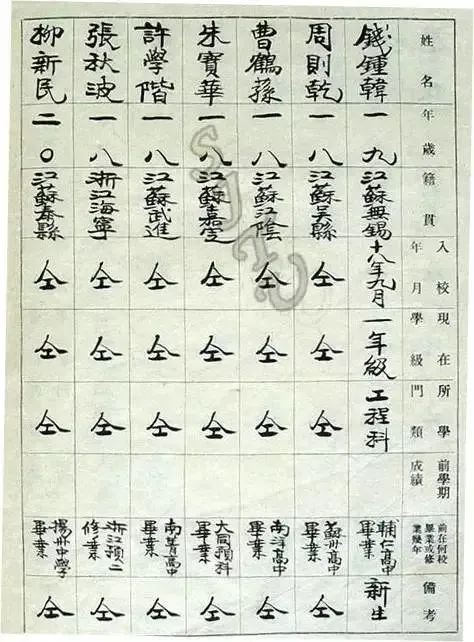 姓名 年歲 籍貫 入校年月 現在學級 所學門類 前學期成績 前在何校畢業或修業幾年 備考
錢鍾韓 一九 江蘇無錫 十八年九月 一年級 工程科 輔仁高中畢業 新生
周則乾 一八 江蘇吳縣 仝 仝 仝 蘇州高中畢業 仝
曹鶴蓀 一八 江蘇江陰 仝 仝 仝 南洋高中畢業 仝
朱寶華 一八 江蘇嘉定 仝 仝 仝 大同預科畢業 仝
許學階 一八 江蘇武進 仝 仝 仝 南菁高中畢業 仝
張秋波 一八 浙江海寧 仝 仝 仝 浙江預二修業 仝
柳新民 二〇 江蘇泰縣 仝 仝 仝 揚州中學畢業 仝